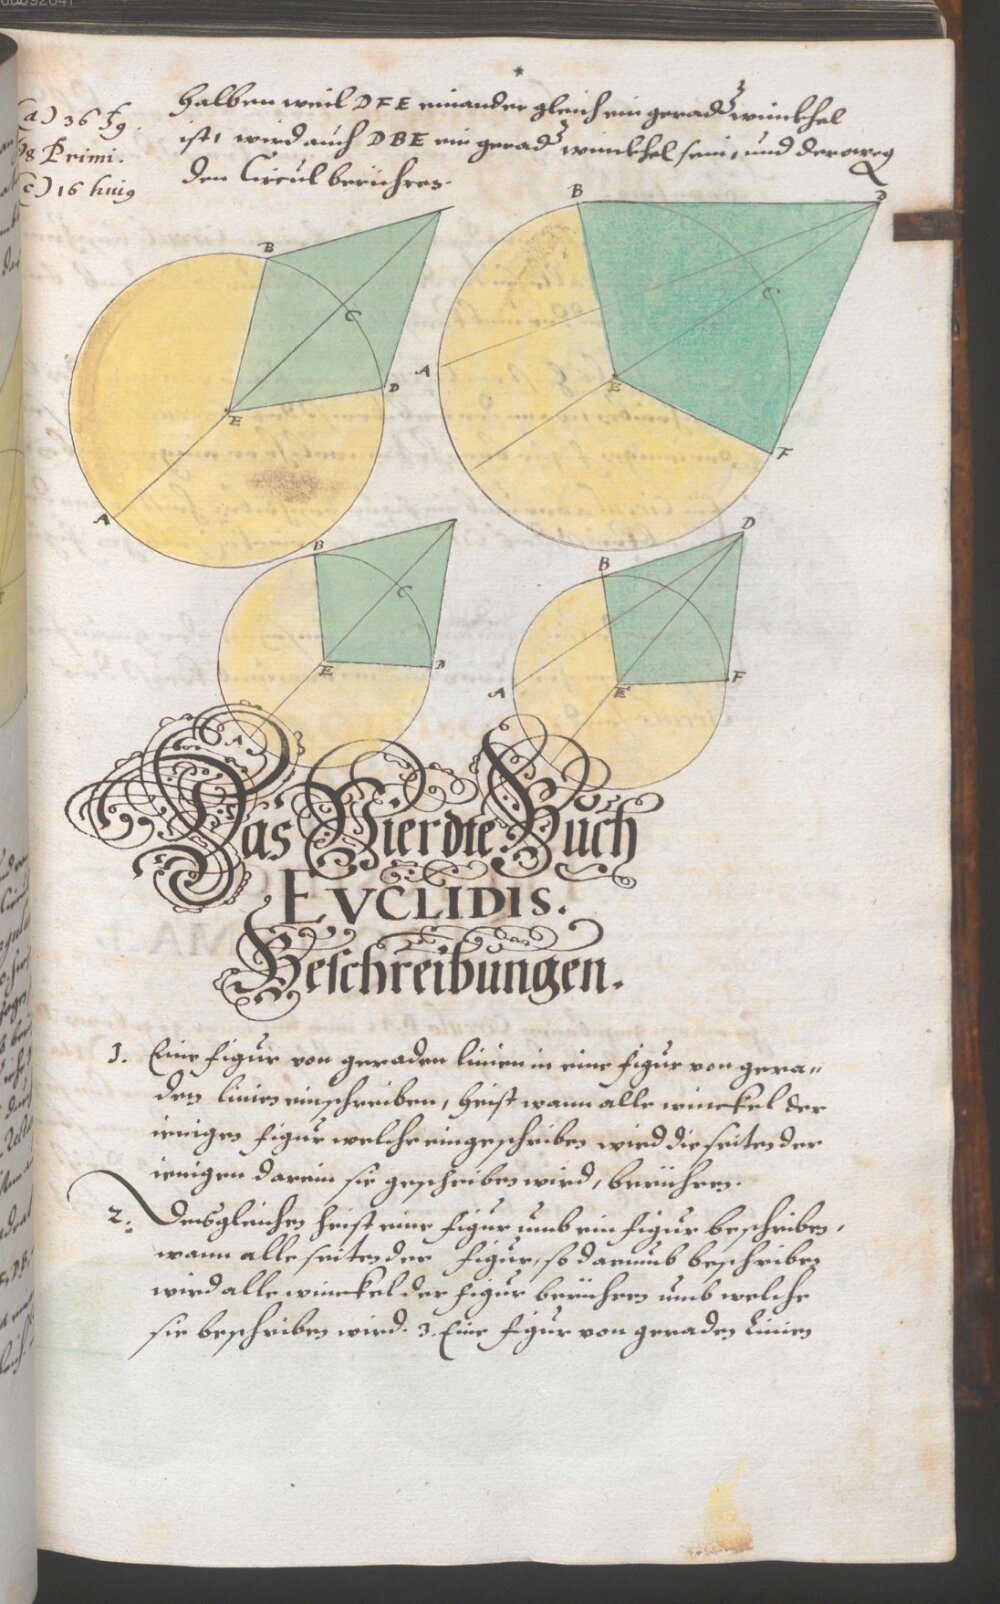 halben weil DFE einander gleich ein gerad winckhel
ist, wird auch DBE ein gerad winckhel sein, und der weg
den Circul berühren.
a) 36
8 Primi.
c) 16 huig
B
C
D
E
A
B
D
C
A
E
F
B
C
E
D
A
D
B
A
E
F
Das Vierdte Buch
EVCLIDIS.
Beschreibungen.
1. Eine figur von geraden linien in eine figur von gera„
den linien einschreiben, heist wann alle winckel der
ienigen figur welche eingeschriben wird die seiten der
ienigen darein sie geschriben wird, berühren.
2. Desgleichen heist eine figur umb ein figur beschriben,
wann alle seiten der figur, so darumb beschriben
wird alle winckel der figur berühren umb welche
sie beschriben wird. 3. Eine figur von geraden Linien